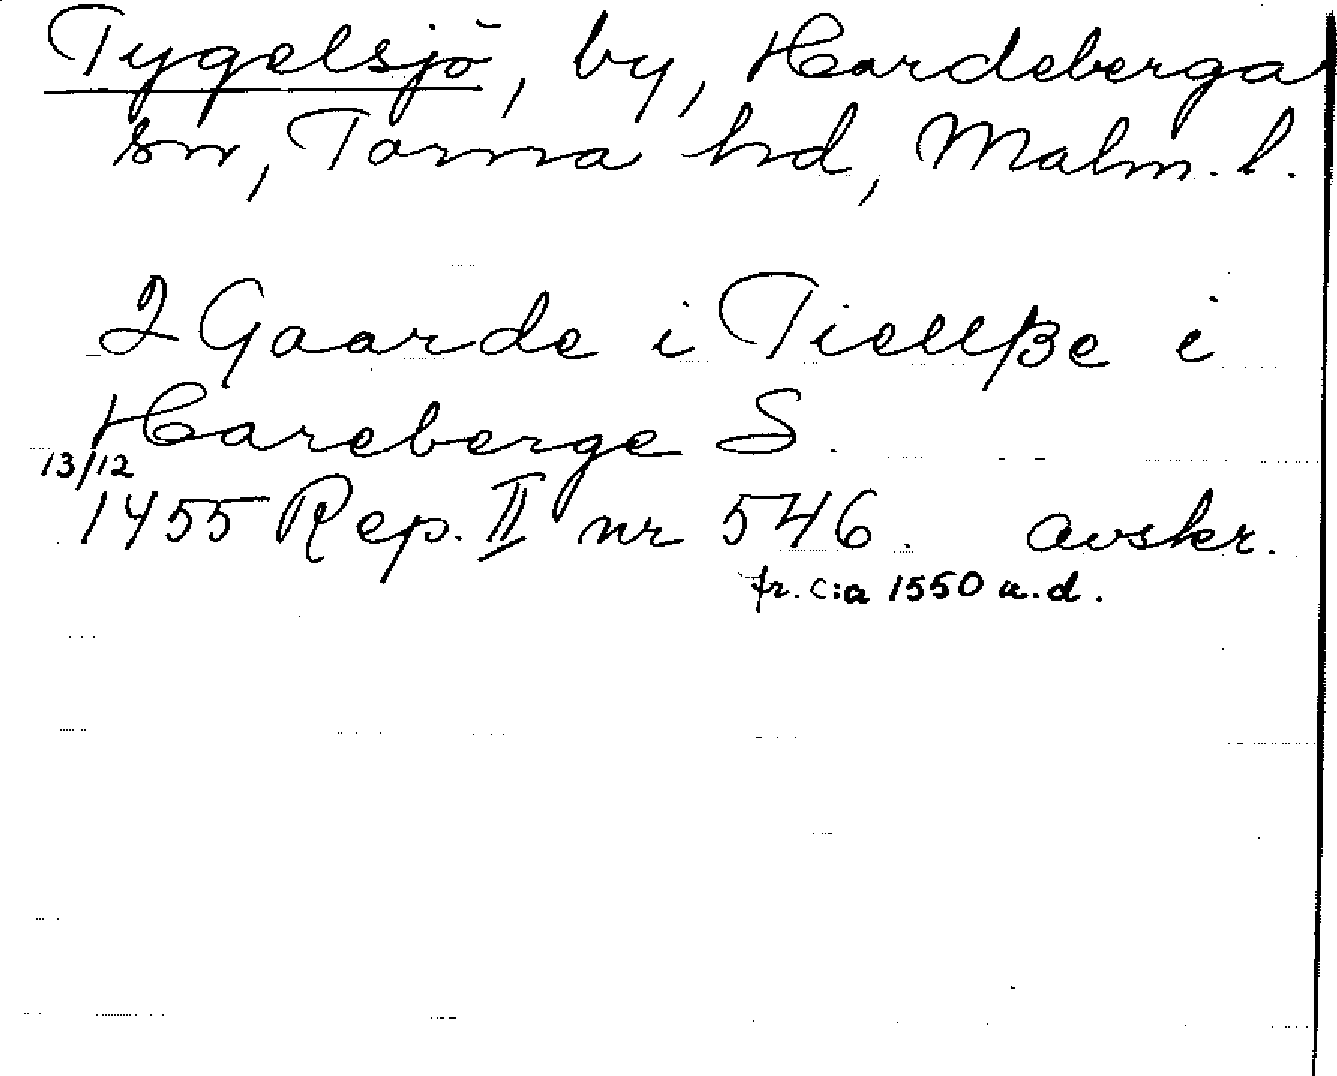 Tygelsjö, by, Hardeberga
sn, Torna hd, Malm. l.
2 Gaarde i Tiellße i
Hareberge S.
13/12
1455 Rep. II nr 546. avskr.
fr. c:a 1550 a.d.